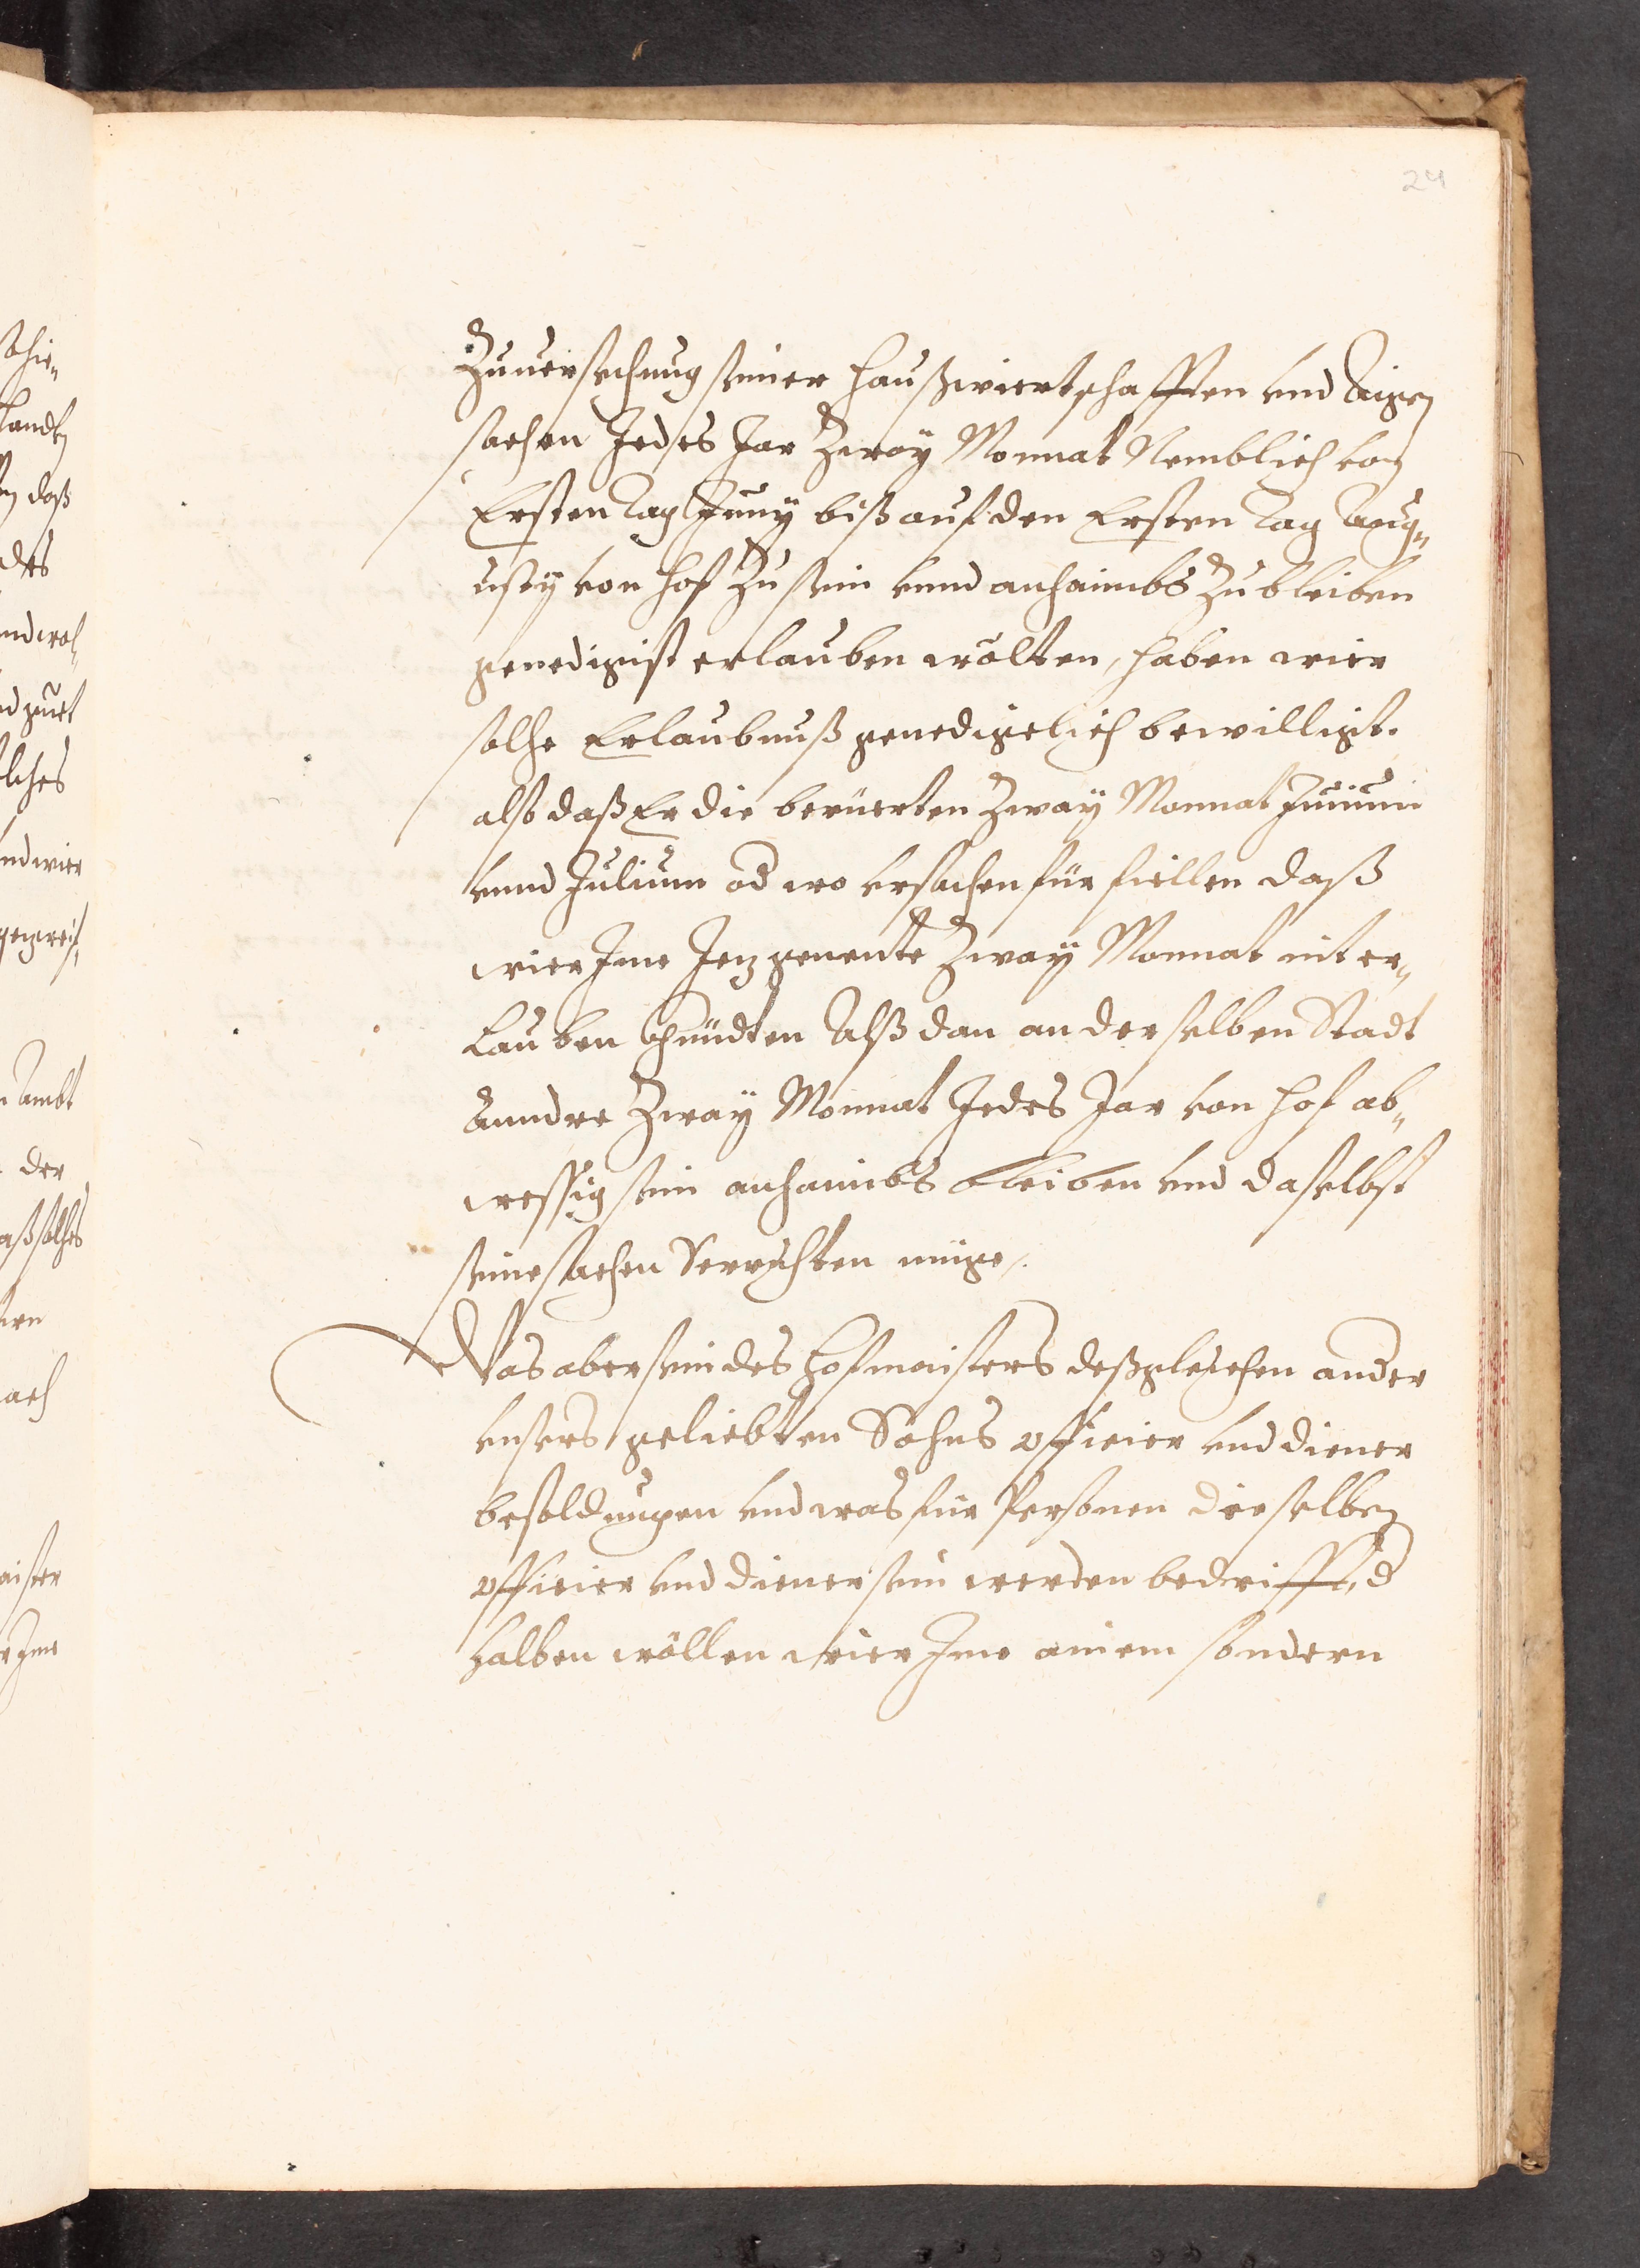 24
Zuuersechung seiner Haußwiertschafften vnd Aigen
sachen Jedes Jar Zway Monnat Nemblich von
Ersten Tag Juny biß auf den Ersten Tag Aug„
usty von Hof zu sein vnnd anhaimbs zu bleiben
genedigist erlauben wölten, haben wier
solhe Erlaubnuß genedigelich bewilligt.
also daß Er die beruerten Zway Monnat Junium
vnnd Julium od wo vrsachen für fiellen daß
wier Ime Jez genente Zway Monnat nit er„
lauben khündten Alß dan an derselben Stadt
Anndre Zway Monnat Jedes Jar von Hof ab„
wessig sein anhaimbs bleiben vnd daselbst
seine sachen Verrichten müge.
Was aber sein des Hofmaisters deßgleichen ander
vnsers geliebten Sohns officier vnd diener
besoldungen vnd was für Personen dieselben
officier vnd diener sein werden bedrifft, d
halben wöllen wier Ime ainem sondern